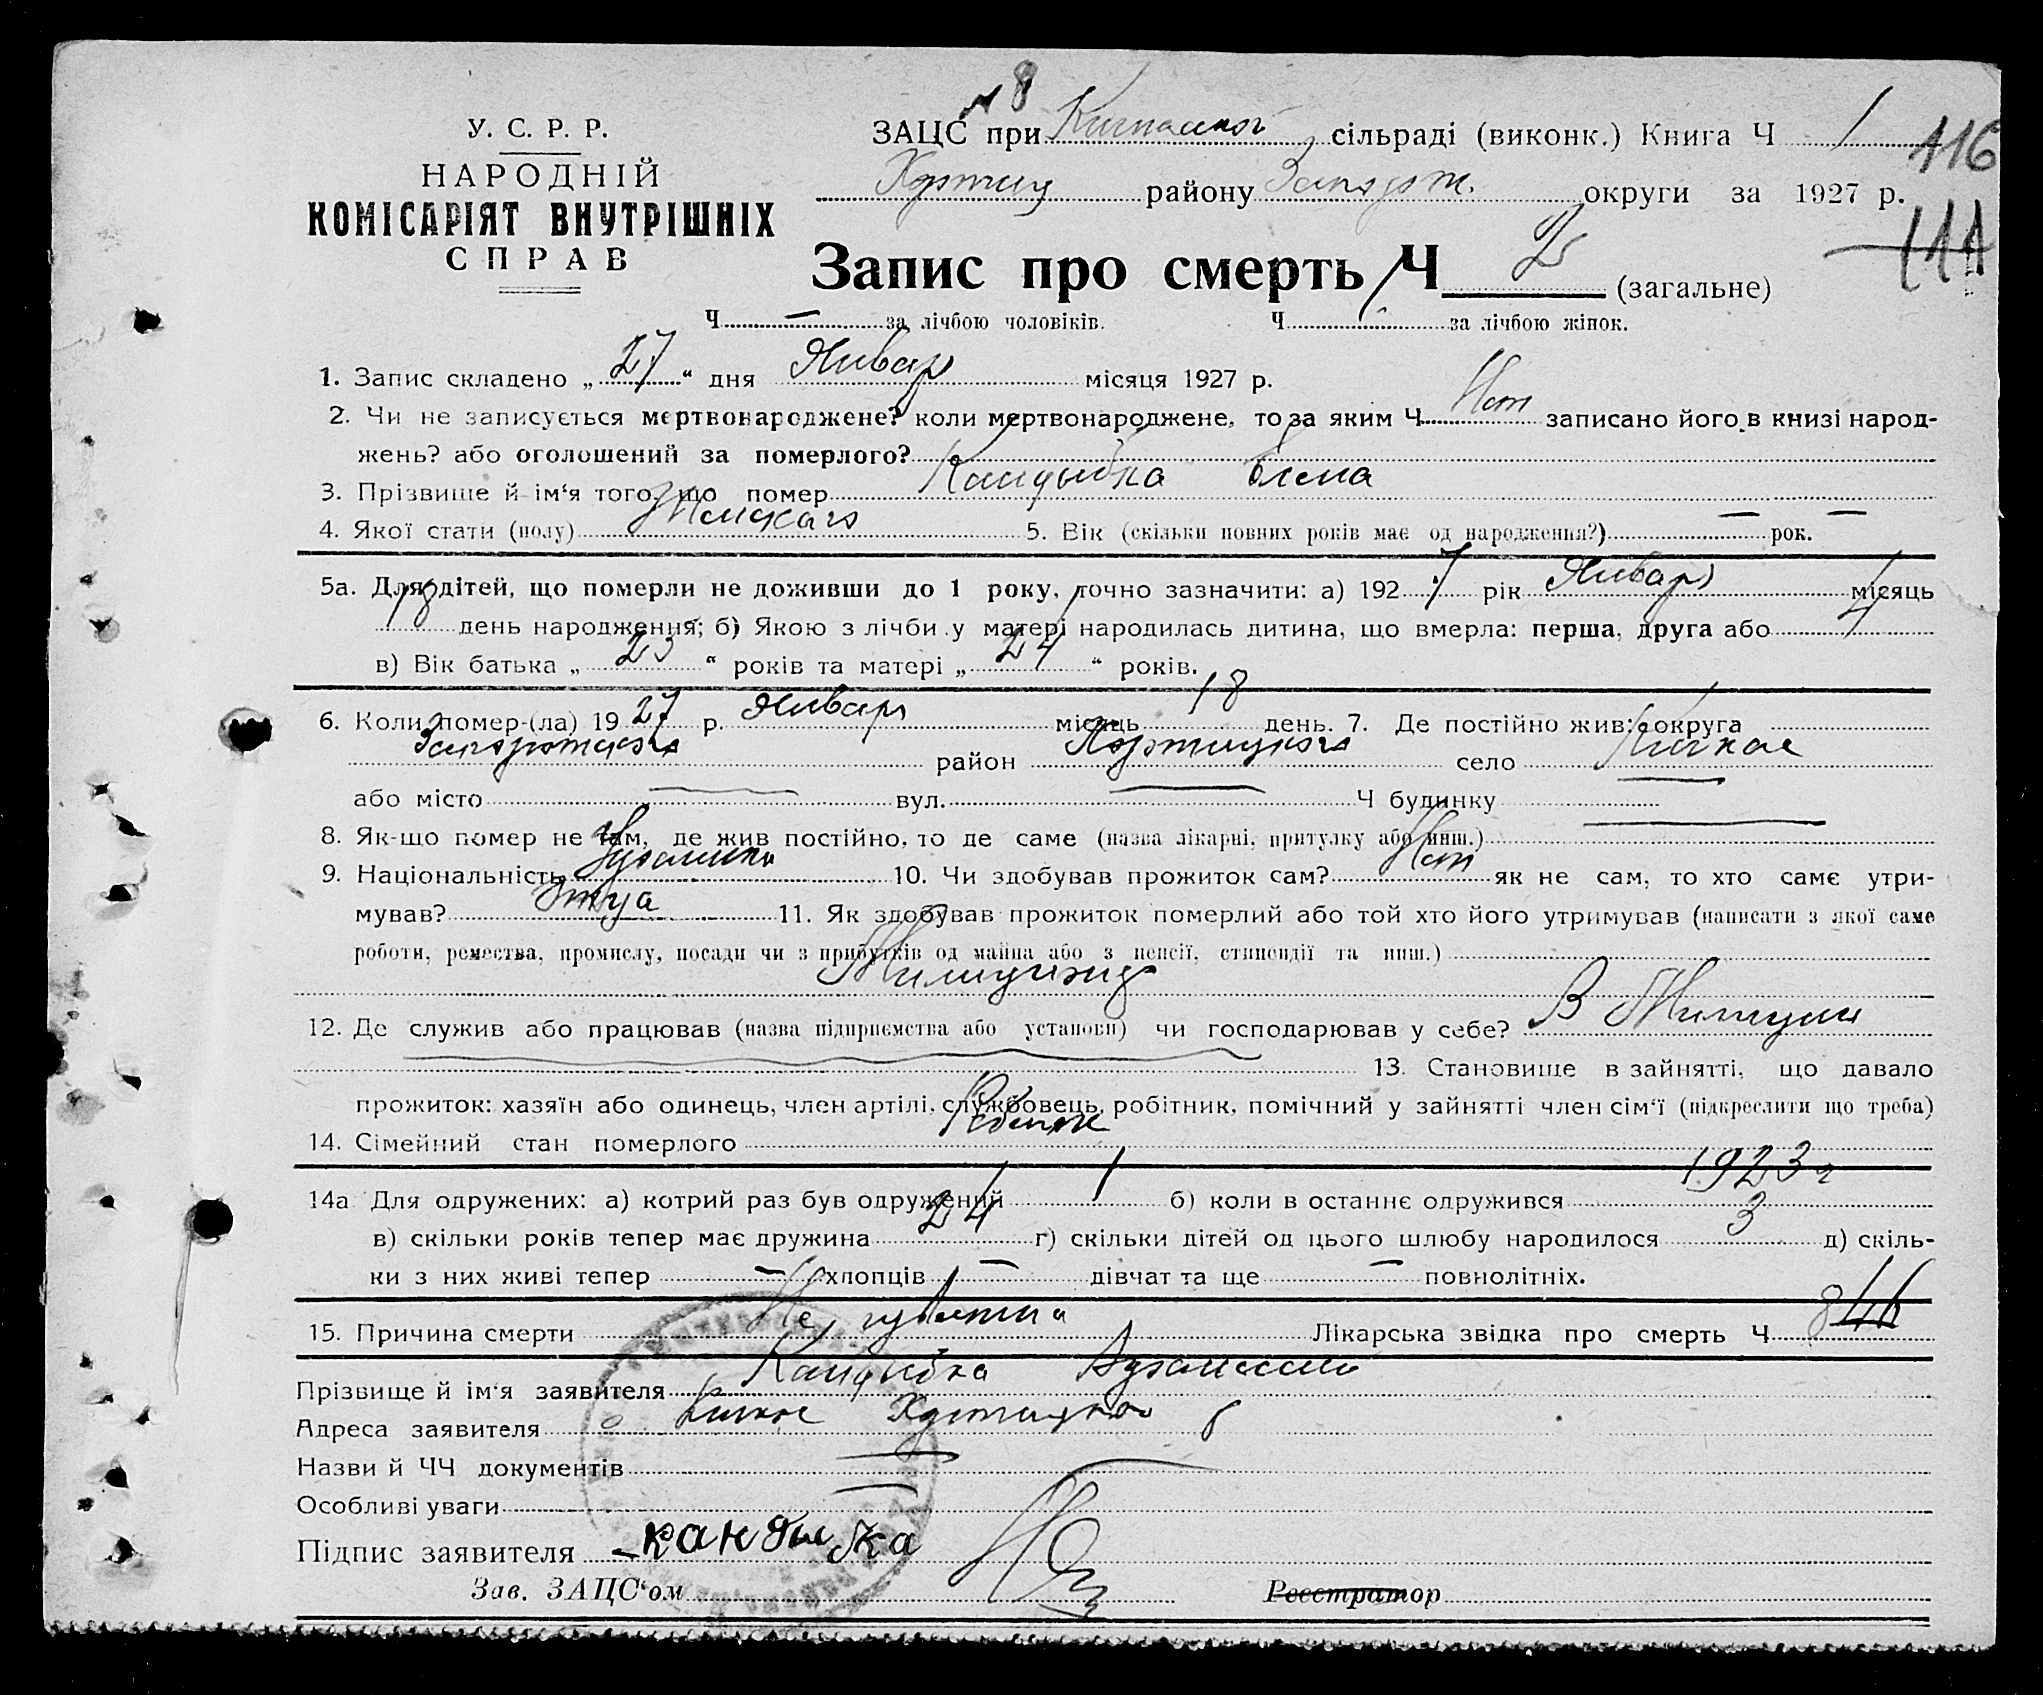 8
У. С. Р. Р.
НАРОДНІЙ
КОМІСАРІЯТ ВНУТРІШНІХ
СПРАВ
ЗАЦС при сільраді (виконк.) Книга Ч 1
116
району округи за 1927 р.
111
Запис про смерть Ч 2 (загальне)
Ч — за лічбою чоловіків. Ч за лічбою жінок.
1. Запис складено „27“ дня Январ місяця 1927 р.
2. Чи не записується мертвонароджене? коли мертвонароджене, то за яким Ч Нет записано його в книзі народ-
жень? або оголошений за померлого?
3. Прізвище й ім‘я того, що помер Кандыбка
4. Якої стати (полу) Женского 5. Вік (скільки повних років має од народження?) — рок. —
5а. Для дітей, що померли не доживши до 1 року, точно зазначити: а) 192 7 рік Январ місяць
18 день народження; б) Якою з лічби у матері народилась дитина, що вмерла: перша, друга або
в) Вік батька „23“ років та матері „24“ років.
6. Коли помер-(ла) 19 27 р. Январ місяць 18 день. 7. Де постійно жив: округа
Запорожского район Хортицкого село Кичкас
або місто — вул. — Ч будинку —
8. Як-що помер не там, де жив постійно, то де саме (назва лікарні, притулку або инш.)
9. Національність 10. Чи здобував прожиток сам? Нет як не сам, то хто саме утри-
мував? Отца 11. Як здобував прожиток померлий або той хто його утримував (написати з якої саме
роботи, ремества, промислу, посади чи з прибутків од майна або з пенсії, стипендії та инш.)
Милиционер
12. Де служив або працював (назва підприємства або установи) чи господарював у себе? В Милиции
13. Становище в зайнятті, що давало
прожиток: хазяїн або одинець, член артілі, службовець, робітник, помічний у зайнятті член сім‘ї (підкреслити що треба)
14. Сімейний стан померлого Ребенок
14а Для одружених: а) котрий раз був одружений 1 б) коли в останнє одружився 1923 г
в) скільки років тепер має дружина 24 г) скільки дітей од цього шлюбу народилося 3 д) скіль-
ки з них живі тепер — хлопців — дівчат та ще — повнолітніх.
15. Причина смерти Лікарська звідка про смерть Ч
Прізвище й ім‘я заявителя Кандыбка
Адреса заявителя Кичкас
Назви й ЧЧ документів —
Особливі уваги —
Підпис заявителя кандыбка
Зав. ЗАЦС‘ом
Реєстратор